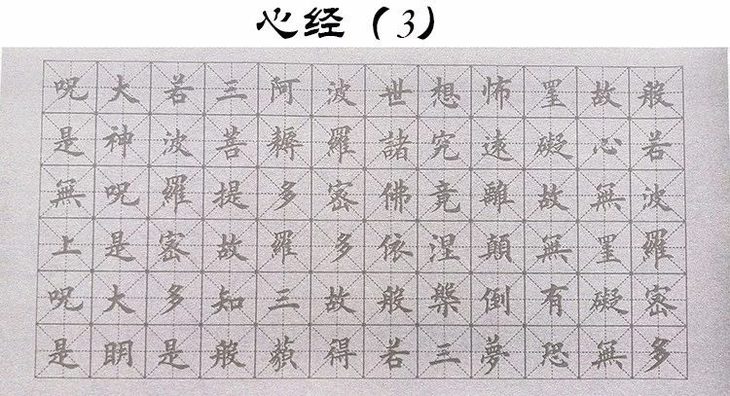 心经（3）
般若波羅密多
故心無罣礙無
罣礙故無有恐
怖遠離顛倒夢
想究竟涅槃三
世諸佛依般若
波羅密多故得
阿耨多羅三藐
三菩提故知般
若波羅密多是
大神呪是大明
呪是無上呪是